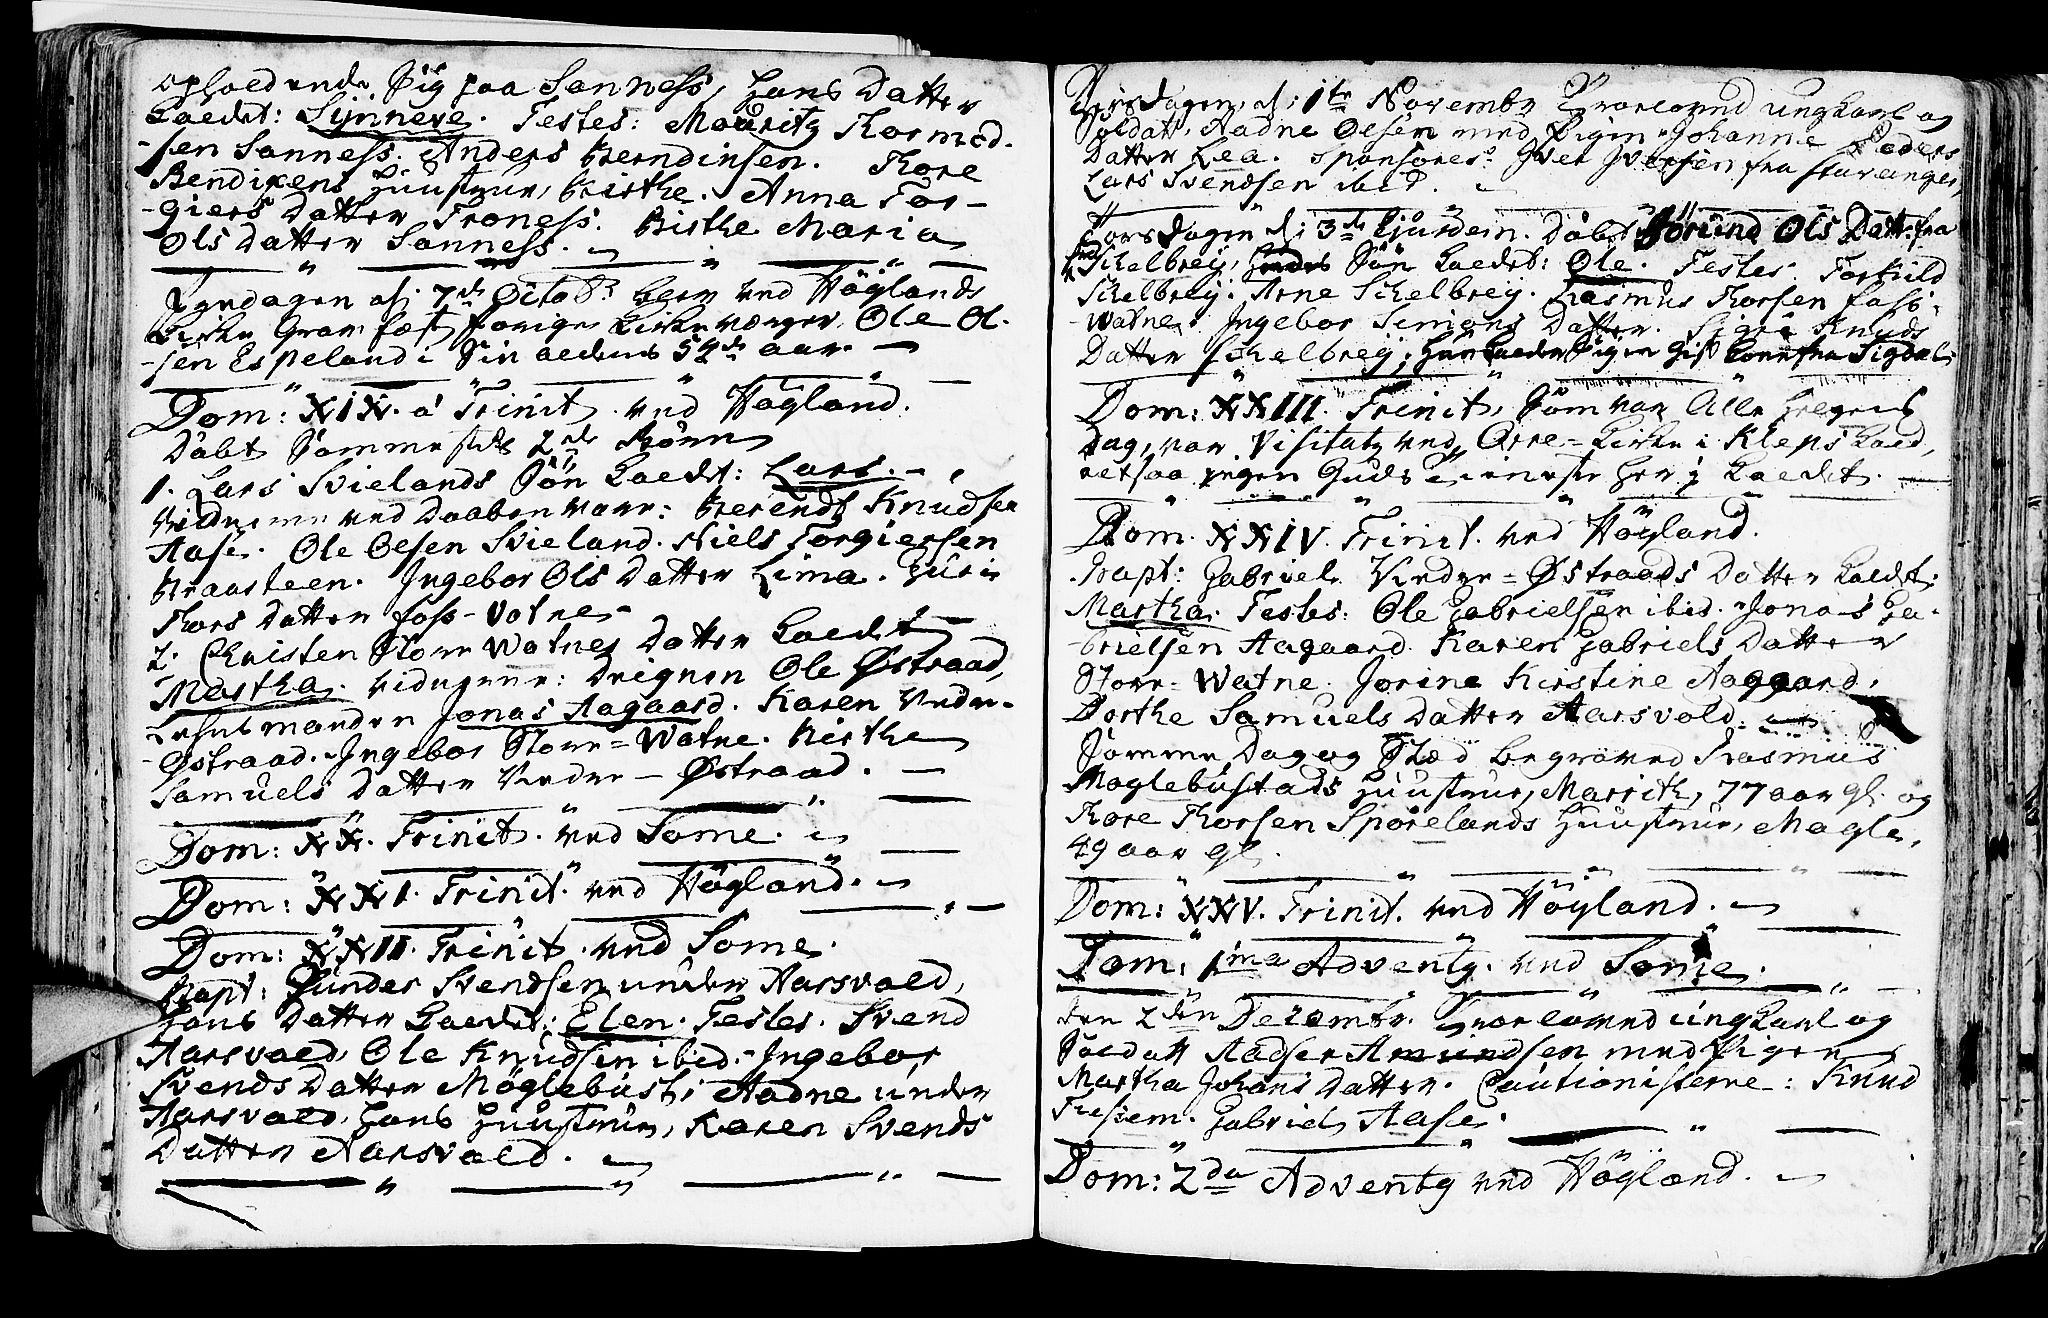 opholdende sig paa Sanness, hans Datter
kaldet: Synneve. Testes: Mouritz Thormod-
-sen Sanness. Anders Berndinsen. Thore
Bendixens Huustrue, Birthe. Anna Tor-
-giers Datter Troness. Birthe Maria
Ols Datter Sanness.
Syndagen d: 7de Octobr blev ved Höylands
Kirke Gravfæst forige Kirkeværger Ole Ol-
-sen Espeland i sin alders 52de aar
Dom: XIX. a Trinit. ved Höyland.
Döbt sammesteds 2de Börn
1. Lars Svielands Sön kaldt: Lars.
Vidnerne ved Daaben vare: Berendt Knudsen
Aase. Ole Olsen Svieland. Niels Torgiersen
Braasteen. Ingebor Ols Datter Lima. Guri
Thors Datter Foss-Vatne
2. Christen Store Watnes Datter kaldet
Martha. Vidnerne: Drengen Ole Østraad,
Lensmanden Jonas Aagaard. Karen Nedre-
-Østraad. Ingebor Store=Watne. Birthe
Samuels Datter Nedre-Østraad.
Dom: XX. Trinit. ved Some.
Dom: XXI. Trinit. ved Höyland.
Dom: XXII. Trinit. ved Some.
Bapt: Gunder Svendsen under Aarsvold,
hans Datter kaldet: Elen. Testes. Svend
Aarsvold, Ole Knudsen ibid. Ingebor
Svends Datter Möglebust; Aadne under
Aarsvold, hans Huustrue, Karen Svends
Datter Aarsvold.
Tiisdagen, d: 1te Novembr Troeloved ungkarl og
Soldatt, Aadne Olsen med Pigen Johanne Peders
Datter Lea. Sponsores: Iver Iversen fra Stavanger,
Lars Svendsen ibid.
Torsdagen d: 3de Ejusdem. Döbt Jörund Ols Datt: fra
Skelbrey, Sön kaldet: Ole. Testes. Torkild
Skelbrey. Arne Skelbrey. Rasmus Thorsen Foss-
-watne. Ingebor Simons Datter. Sigri Knuds
Datter Skelbreÿ; gift fra Sigdal.
Dom: XXIII. Trinit. som var Alle Helgens
Dag, var Visitatz ved Orre-Kirke i Kleps Kald,
altsaa ingen Guds tieneste her i Kaldet.
Dom. XXIV. Trinit. ved Höyland.
Bapt: Gabriel Nedre=Østraads Datter kaldet:
Martha. Testes: Ole Gabrielsen ibid. Jonas Ga-
-brielsen Aagaard. Karen Gabriels Datter
Store-Watne. Jorine Kirstine Aagaard.
Dorthe Samuels Datter Aarsvold.
Samme Dag og Stæd begraved Rasmus
Möglebustads Huustrue, Marrith, 77 aar gl. og
Thore Thorsen Spörelands Huustrue, Magle,
49 aar gl.
Dom: XXV. Trinit. ved Höyland.
Dom: 1ma Adventg. ved Some.
den 2den Decembr. Troeloved ungkarl og
Soldatt Aadser Amundsen med Pigen
Martha Johans Datter. Cautionisterne: Knud
Tresiem. Gabriel Aase.
Dom: 2da Adventg ved Höyland.